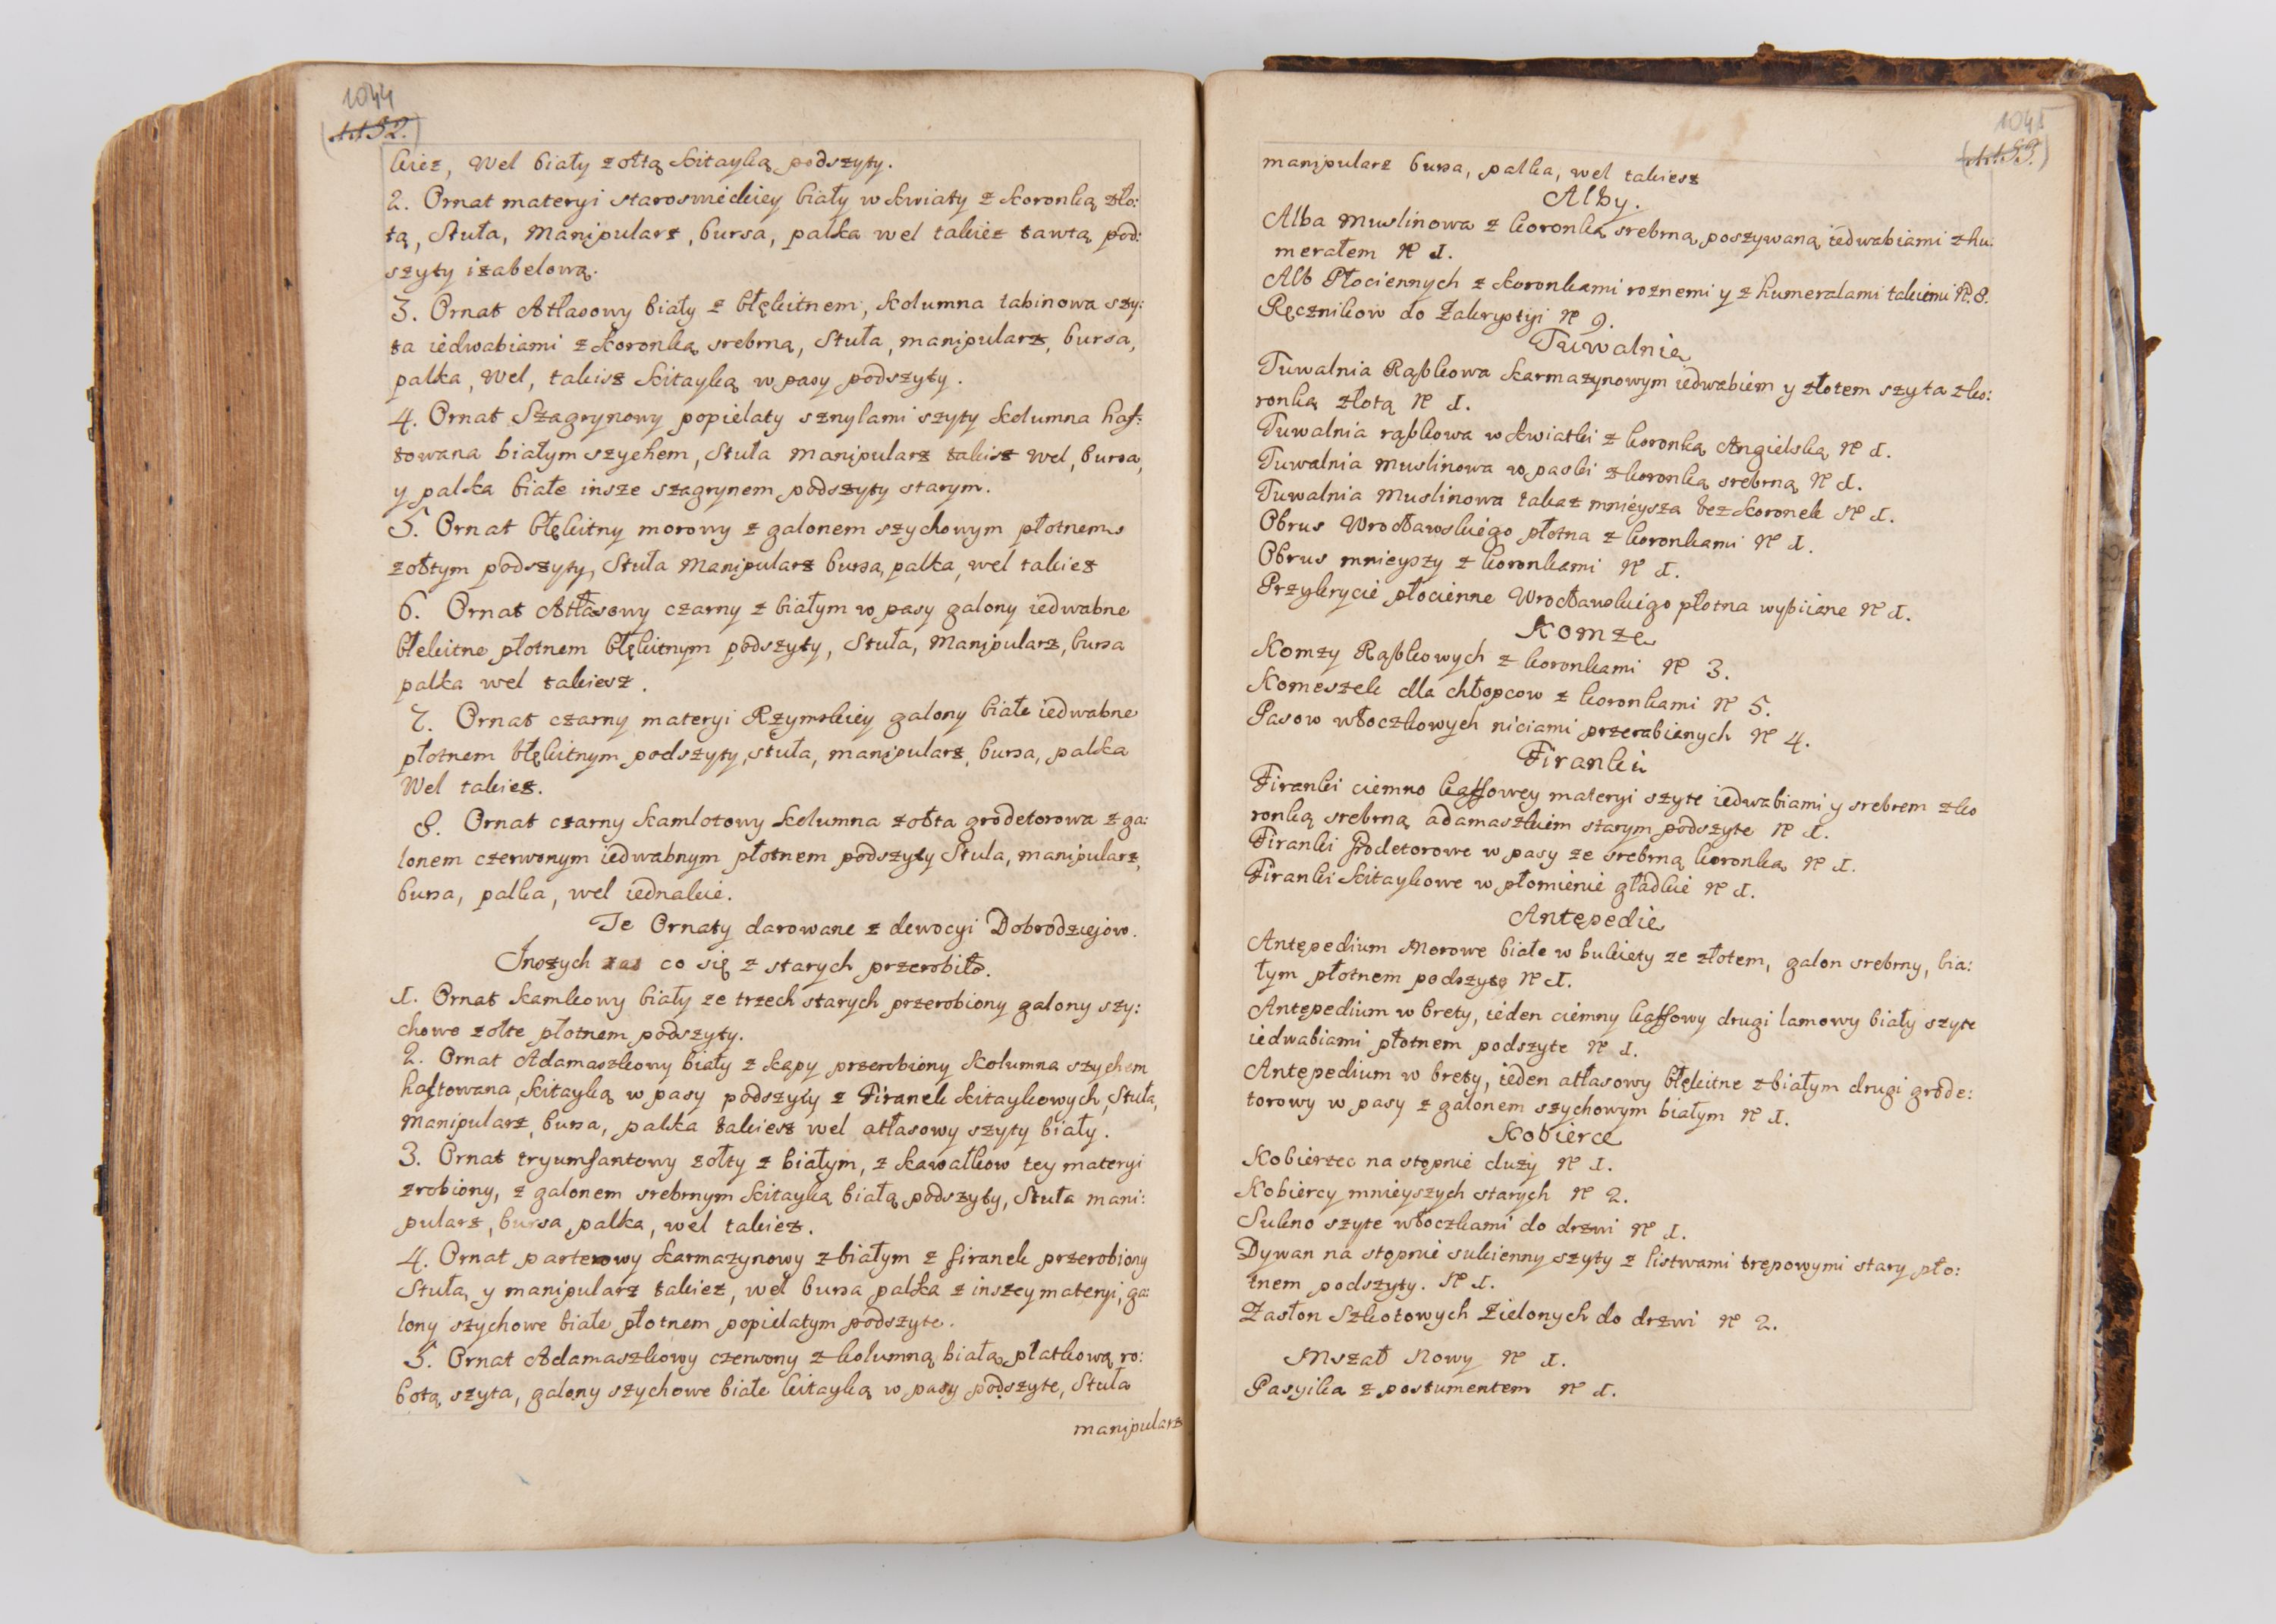 1044
(1152.)
kież, Wel biały zołtą kitayką podszyty.
2. Ornat materyi staroswieckiey biały w kwiaty z koronką zło:
tą, Stuła, Manipularz, bursa, palka wel takież tawtą pod:
szyty izabelową.
3. Ornat Atłasowy biały z błękitnem, kolumna tabinowa szy:
ta iedwabiami z koronką srebrną, Stuła, manipularz, bursa,
palka, Wel, takisz kitayką w pasy podszyty.
4. Ornat Szagrynowy popielaty sznylami szyty kolumna haf:
towana białym szychem, Stuła Manipularz takisz Wel, bursa,
y palka białe insze szagrynem podszyty starym.
5. Ornat błękitny morowy z galonem szychowym płotnem
zołtym podszyty, Stuła Manipularz bursa, palka, wel takież
6. Ornat Atłasowy czarny z białym w pasy galony iedwabne
błekitne płotnem błękitnym podszyty, Stuła, Manipularz, bursa
palka wel takiesz.
7. Ornat czarny materyi Rzymskiey galony białe iedwabne
płotnem błękitnym podszyty, stuła, manipularz, bursa, palka
Wel takież.
8. Ornat czarny kamlotowy kolumna zołta grodetorowa z ga:
lonem czerwonym iedwabnym płotnem podszyty Stuła, manipularz,
bursa, palka, wel iednakie.
Te Ornaty darowane z dewocyi Dobrodziejow.
Inszych zas co się z starych przerobiło.
1. Ornat kamkowy biały ze trzech starych przerobiony galony szy:
chowe zołte płotnem podszyty.
2. Ornat Adamaszkowy biały z kapy przerobiony kolumna szychem
haftowana, kitayką w pasy podszyty z Firanek kitaykowych, Stuła,
Manipularz, bursa, palka takiesz wel atłasowy szyty biały.
3. Ornat tryumfantowy zołty z białym, z kawałkow tey materyi
zrobiony, z galonem srebrnym kitayką białą podszyty, Stuła mani:
pularz, bursa, palka, wel takież.
4. Ornat parterowy karmazynowy z białym z firanek przerobiony
Stuła, y manipularz takież, wel bursa palka z inszey materyi, ga:
lony szychowe białe płotnem popielatym podszyte.
5. Ornat Adamaszkowy czerwony z kolumną białą, płatkową ro:
botą szyta, galony szychowe białe kitayką w pasy podszyte, Stuła
manipularz
1045
(1153.)
manipularz bursa, palka, wel takiesz
Alby.
Alba Muslinowa z koronką srebrną, poszywaną iedwabiami z hu:
merałem N 1.
Alb Płociennych z koronkami roznemi y z humerałami takiemi N. 8.
Ręcznikow do Zakrystyi N 9.
Tuwalnie
Tuwalnia Rąbkowa karmazynowym iedwabiem y złotem szyta z ko:
ronką złotą N 1.
Tuwalnia rąbkowa w kwiatki z koronką Angielską N 1.
Tuwalnia Muslinowa w paski z koronką srebrną N 1.
Tuwalnia Muslinowa takaz mnieysza bez koronek N 1.
Obrus Wrocławskiego płotna z koronkami N 1.
Obrus mnieyszy z koronkami N 1.
Przykrycie płocienne Wrocławskiego płotna wybiiane N 1.
Komze
Komzy Rąbkowych z koronkami N 3.
Komeszek dla chłopcow z koronkami N 5.
Pasow włoczkowych niciami przerabianych N 4.
Firanki
Firanki ciemno kaffowey materyi szyte iedwabiami y srebrem z ko
ronką srebrną adamaszkiem starym podszyte N 1.
Firanki Grodetorowe w pasy ze srebrną koronką N 1.
Firanki kitaykowe w płomienie gładkie N 1.
Antępedie
Antępedium Morowe białe w bukiety ze złotem, galon srebrny, bia:
łym płotnem podszyte N 1.
Antępedium w brety, ieden ciemny kaffowy drugi lamowy biały szyte
iedwabiami płotnem podszyte N 1.
Antępedium w brety, ieden atłasowy błękitne z białym drugi grode:
torowy w pasy z galonem szychowym białym N 1.
Kobierce
Kobierzec na stopnie duży N 1.
Kobiercy mnieyszych starych N 2.
Sukno szyte włoczkami do drzwi N 1.
Dywan na stopnie sukienny szyty z listwami trępowymi stary pło:
tnem podszyty. N 1.
Zasłon Szkotowych Zielonych do drzwi N 2.
Mszał Nowy N 1.
Pasyika z postumentem N 1.